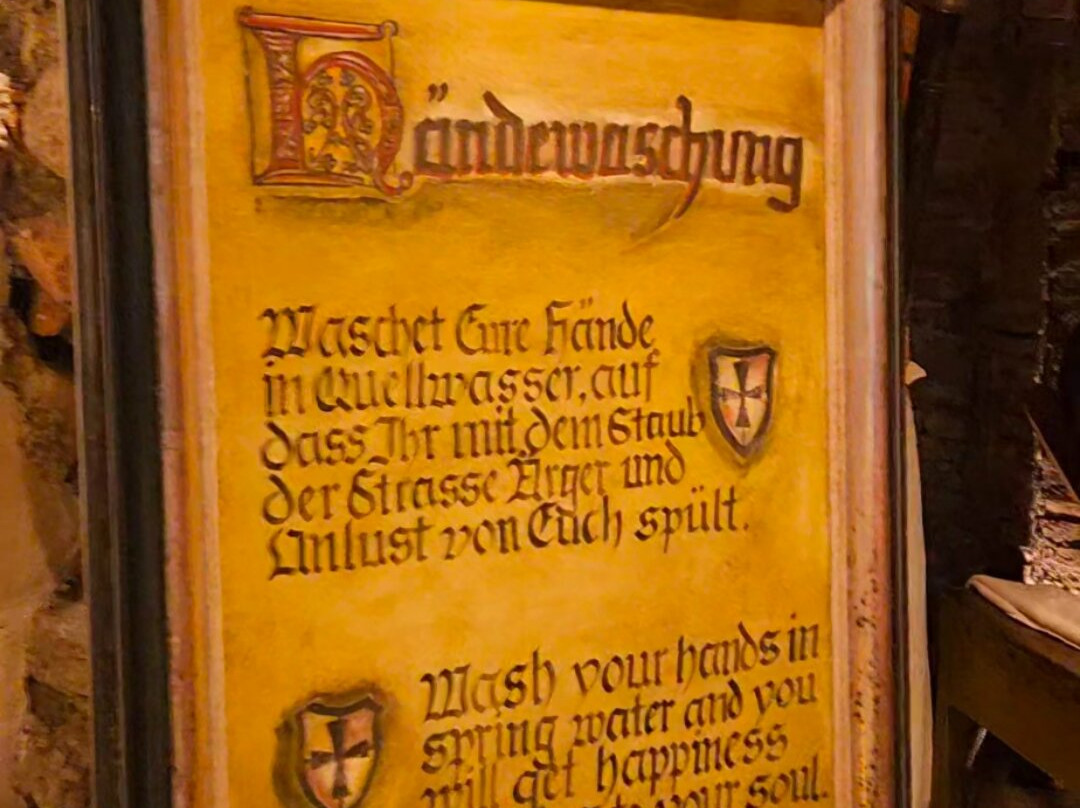 Händewaschung
Waschet Eure Hände
in Quellwasser, auf
dass Ihr mit dem Staub
der Strasse Ärger und
Unlust von Euch spült.
Wash your hands in
spring water and you
will get happiness
your soul.